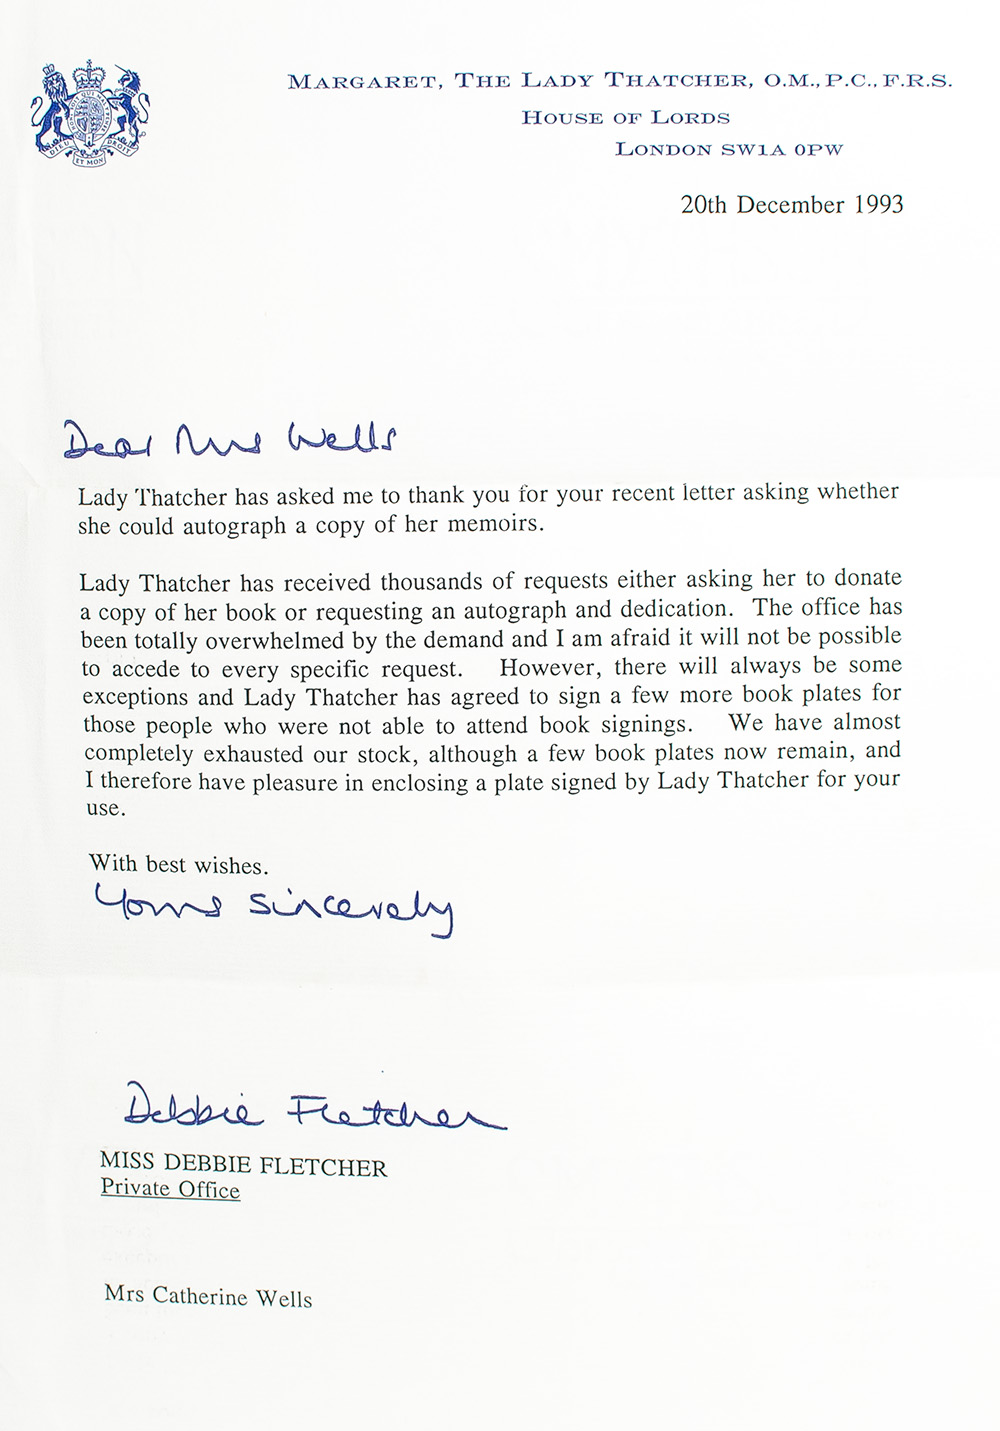 MARGARET, THE LADY THATCHER, O.M., P.C., F.R.S.
HOUSE OF LORDS
LONDON SW1A 0PW
DIEU ET MON DROIT
20th December 1993
Dear Mrs Wells
Lady Thatcher has asked me to thank you for your recent letter asking whether
she could autograph a copy of her memoirs.
Lady Thatcher has received thousands of requests either asking her to donate
a copy of her book or requesting an autograph and dedication. The office has
been totally overwhelmed by the demand and I am afraid it will not be possible
to accede to every specific request. However, there will always be some
exceptions and Lady Thatcher has agreed to sign a few more book plates for
those people who were not able to attend book signings. We have almost
completely exhausted our stock, although a few book plates now remain, and
I therefore have pleasure in enclosing a plate signed by Lady Thatcher for your
use.
With best wishes.
Yours sincerely
Debbie Fletcher
MISS DEBBIE FLETCHER
Private Office
Mrs Catherine Wells